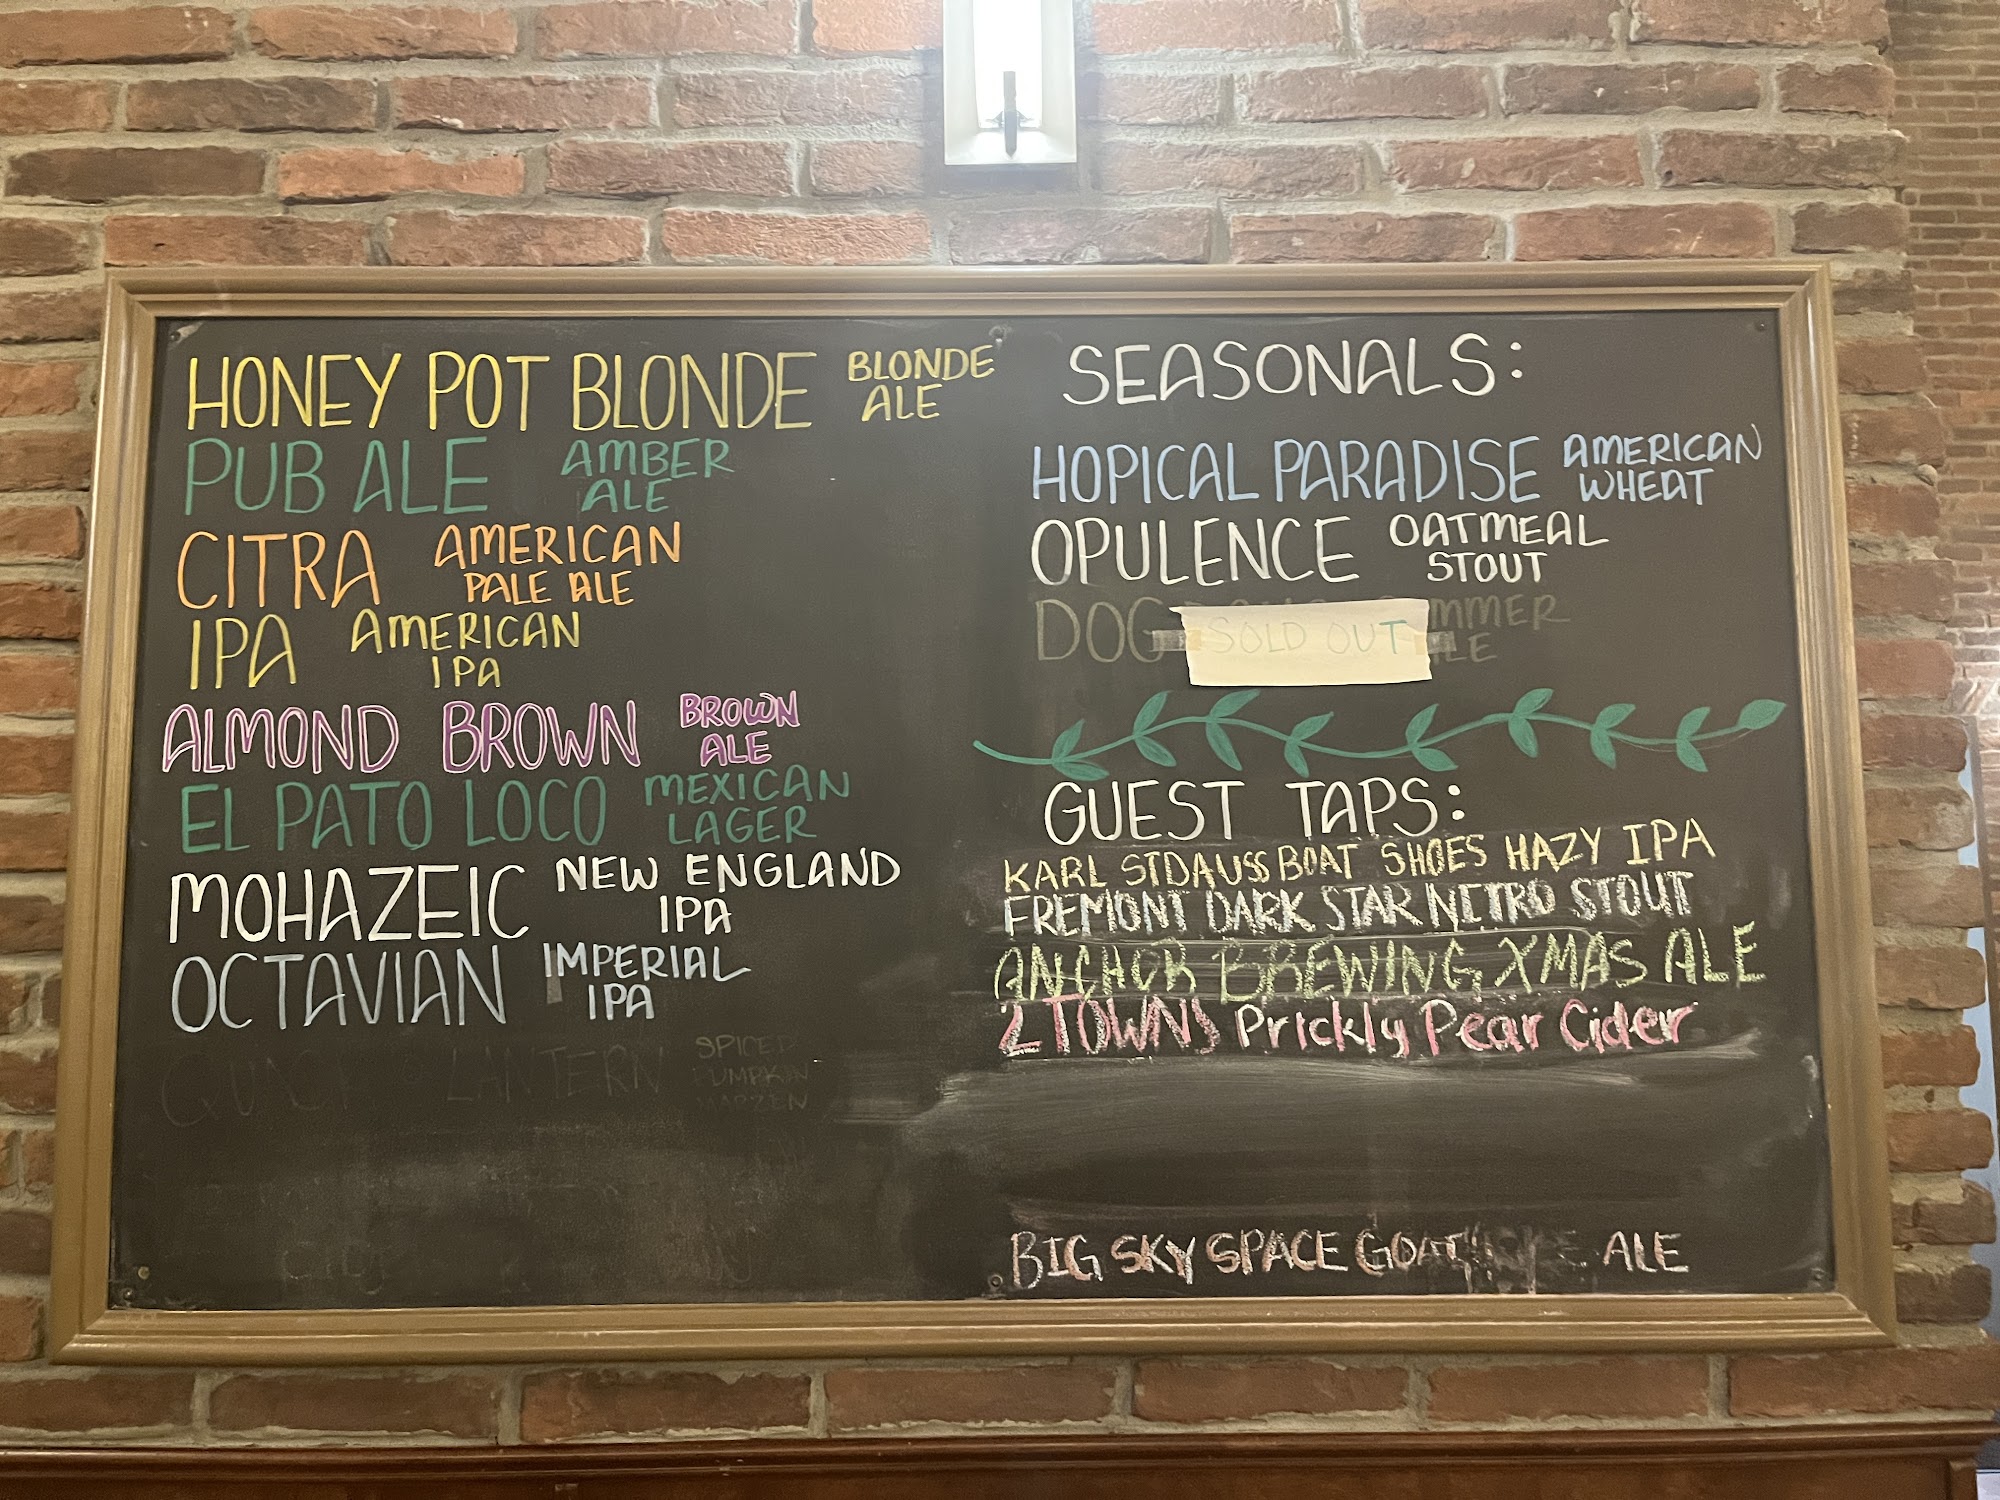 HONEY POT BLONDE BLONDE
ALE
PUB ALE AMBER
ALE
CITRA AMERICAN
PALE ALE
IPA AMERICAN
IPA
ALMOND BROWN BROWN
ALE
EL PATO LOCO MEXICAN
LAGER
MOHAZEIC NEW ENGLAND
IPA
OCTAVIAN IMPERIAL
IPA
LANTERN SPICED
PUMPKIN
MARZEN
SEASONALS:
HOPICAL PARADISE AMERICAN
WHEAT
OPULENCE OATMEAL
STOUT
DOG
SOLD OUT
GUEST TAPS:
KARL STDAUSS BOAT SHOES HAZY IPA
FREMONT DARK STAR NITRO STOUT
ANCHOR BREWING XMAS ALE
2 TOWNS Prickly Pear Cider
BIG SKY SPACE GOAT ALE